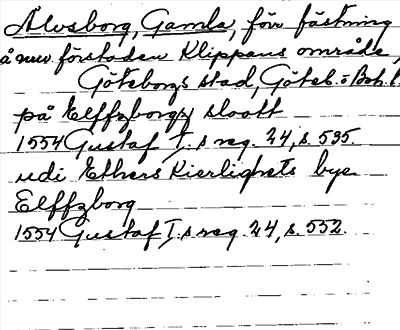 Älvsborg, Gamla, förr fästning
å nuv. förstaden Klippans område,
Göteborgs stad, Göteb. o Boh. l.
på Elffzborgs sloott
1554 Gustaf I:s reg. 24, s. 535.
udi Ethers Kierlighets bye
Elffzborg
1554 Gustaf I:s reg. 24, s. 552.